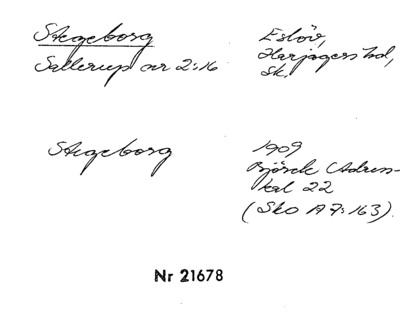 Stegeborg
Eslöv,
Sallerup nr 2:16
Harjagers hd,
Sk.
Stegeborg
1909
Björck Adress-
kal 22
(Sko A7:163).
Nr 21678